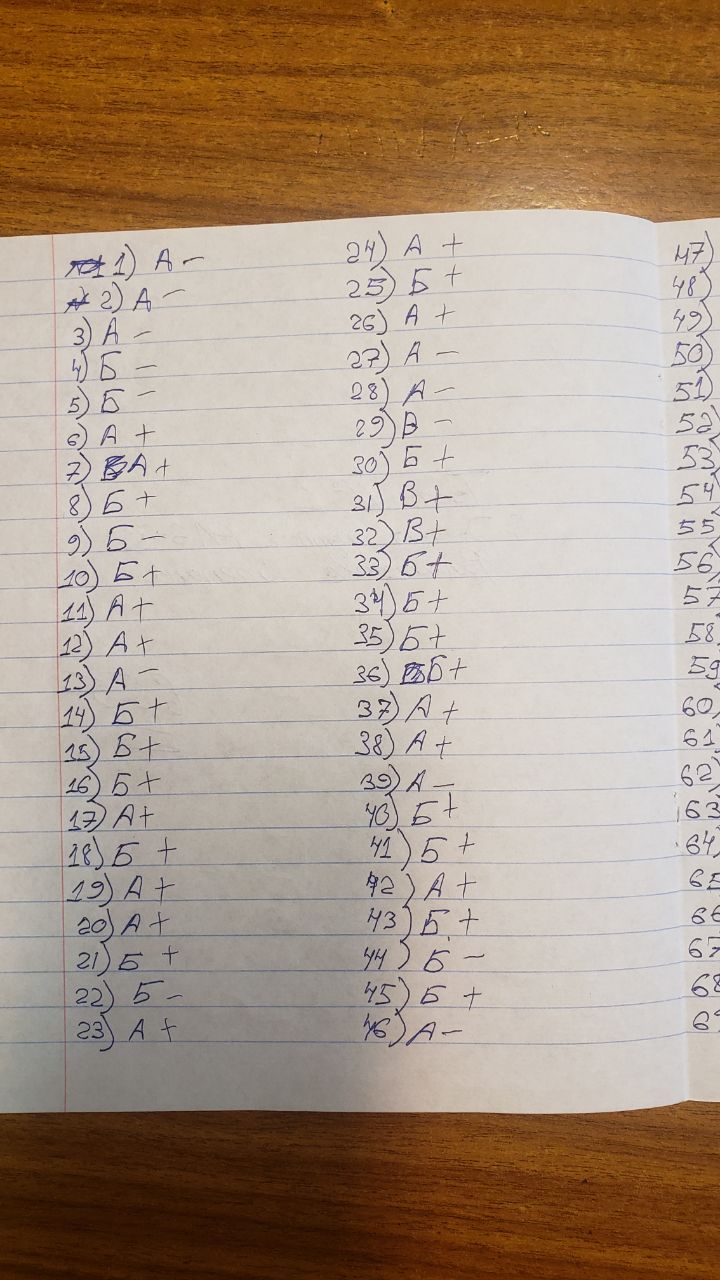 1) А -
2) А -
3) А -
4) Б -
5) Б -
6) А +
7) А +
8) Б +
9) Б -
10) Б +
11) А +
12) А +
13) А -
14) Б +
15) Б +
16) Б +
17) А +
18) Б +
19) А +
20) А +
21) Б +
22) Б -
23) А +
24) А +
25) Б +
26) А +
27) А -
28) А -
29) В -
30) Б +
31) В +
32) В +
33) Б +
34) Б +
35) Б +
36) Б +
37) А +
38) А +
39) А -
40) Б +
41) Б +
42) А +
43) Б +
44) Б -
45) Б +
46) А -
47)
48)
49)
50)
51)
52)
53)
54
55
56)
57
58
59
60)
61)
62)
63
64)
65
66
67
68